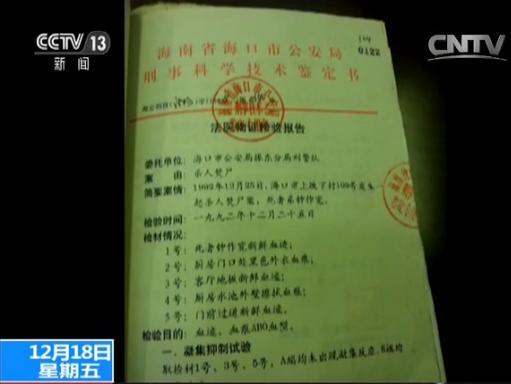 CCTV 13
新闻
CNTV
104
0122
海南省海口市公安局
刑事科学技术鉴定书
法医物证检验报告
委托单位：海口市公安局振东分局刑警队
案由 杀人焚尸
简要案情：1992年12月25日，海口市上坡下村109号发生
一起杀人焚尸案，死者系钟作宽。
检验时间：一九九二年十二月二十五日
检材情况：
1号：死者钟作宽新鲜血迹；
2号：厨房门口处黑色外衣血痕；
3号：客厅地板新鲜血迹；
4号：厨房水池外壁擦拭血痕；
5号：门前过道新鲜血迹。
检验目的：血迹、血痕ABO血型。
一、凝集抑制试验
取检材1号、3号、5号，A端均未出现凝集反应，B端均
12月18日
星期五